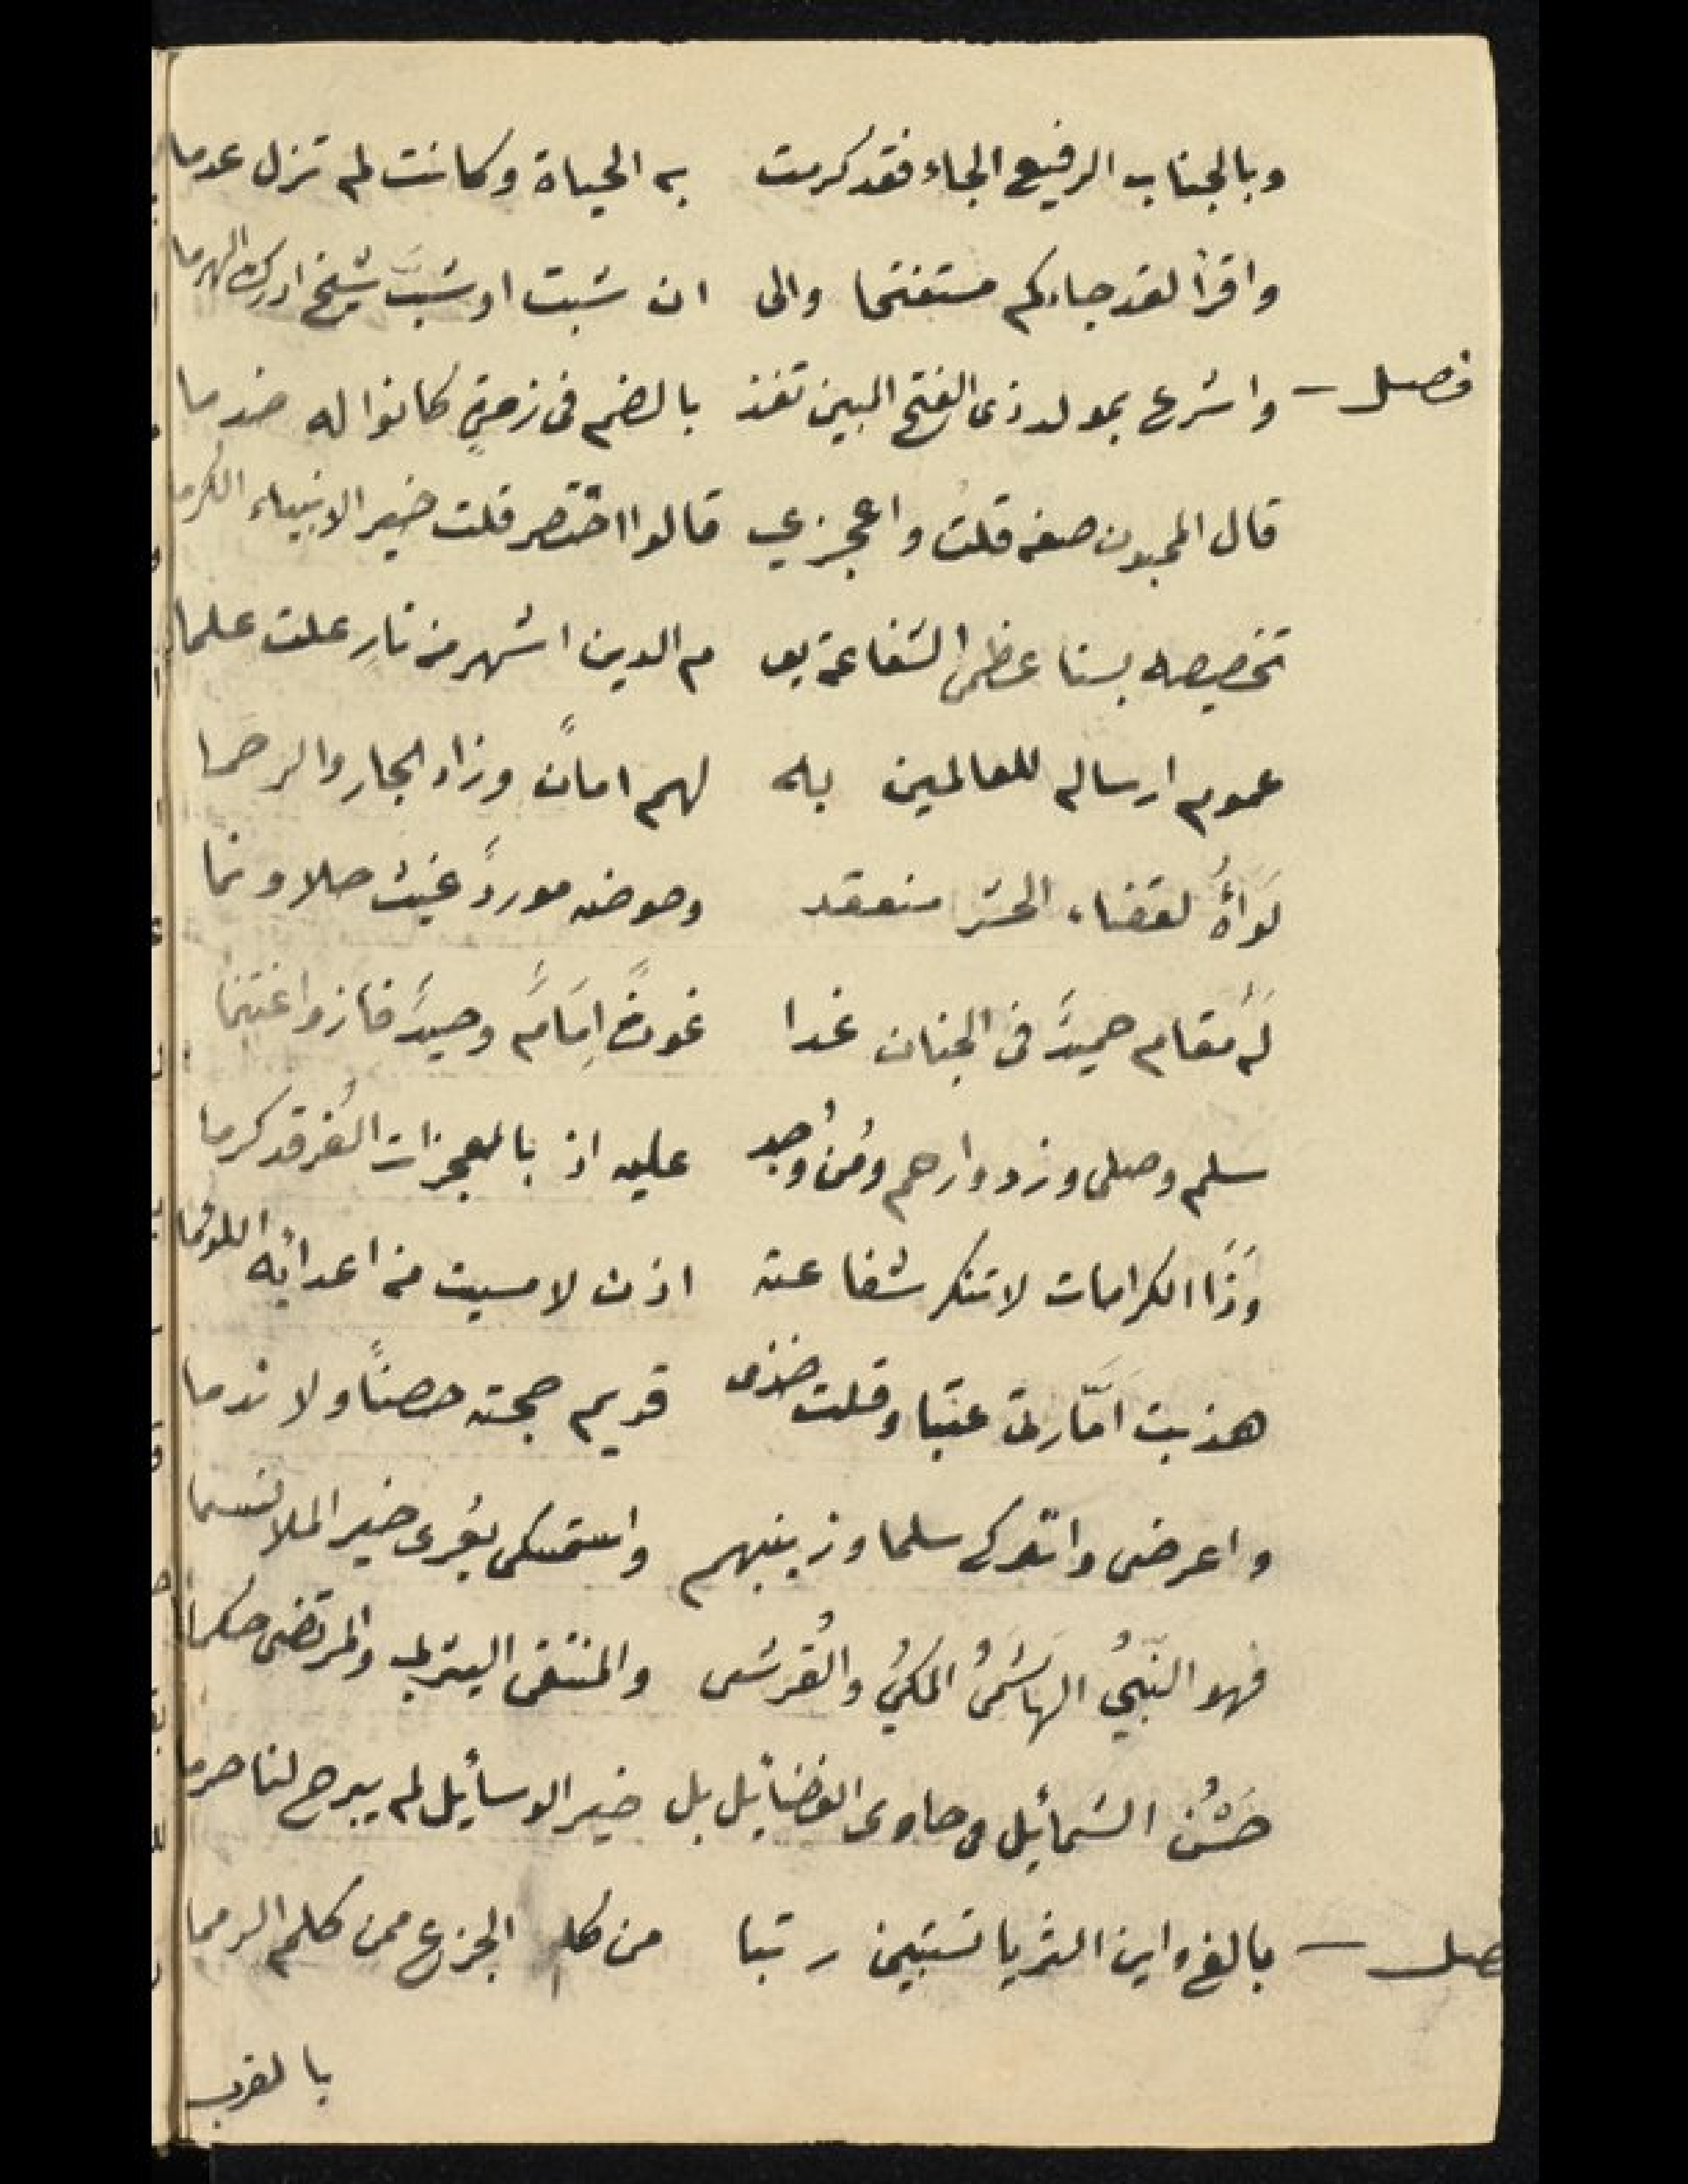 وبالجناب الرفيع الجاء فقد كرمت به الحياة وكانت لم تزل عدما
واقرأ لقد جاءكم مستفتحا والى ان شبت او شبَّ شيخ ادرك الهرما
فصل — واشرع بمولد ذى الفتح المبين تفز بالضم فى زمرةٍ كانوا له خدما
قال المحبون صفه قلتُ واعجزي قالوا اختصر قلت خير الانبياء الكرما
تخصيصه بسنا عظمى الشفاعة يو م الدين اشهر من نارٍ علت علما
عموم ارساله للعالمين به لهم امانٌ وزاد الجار والرحما
لواؤُ لقضاء الحشر منعقد وحوضه موردٌ غيث حلا ونما
لهُ مقام حميدٌ فى الجنان غدا غوثٌ اِمَامٌ وحيدٌ فاز واغتنما
سلم وصلى وزد وارحم ومُن وجُد عليه اذ بالمعجزات الغُر قد كرما
وَذَا الكرامات لا تنكر شفاعته اذن لامسيت من اعدائه اللؤما
هذبت امَّارتى عتبا وقلت خذى قويم حجته حصناً ولا ندما
واعرضى واتركى سلما وزينبهم واستمسكى بعُرى خير الملا نسما
فهو النَّبيُّ الهاشمىُّ المكىُّ والقُرشى والمنتقى اليثربى والمرتضى حكما
حَسَنُ الشمائِل وحاوى الفضائِل بل خير الوسائِل لم يبرح لنا حرما
صل — بالغ واين الثريا تستبين رتبا من كلم الجزع ممن كلم الرمما
بالقرب